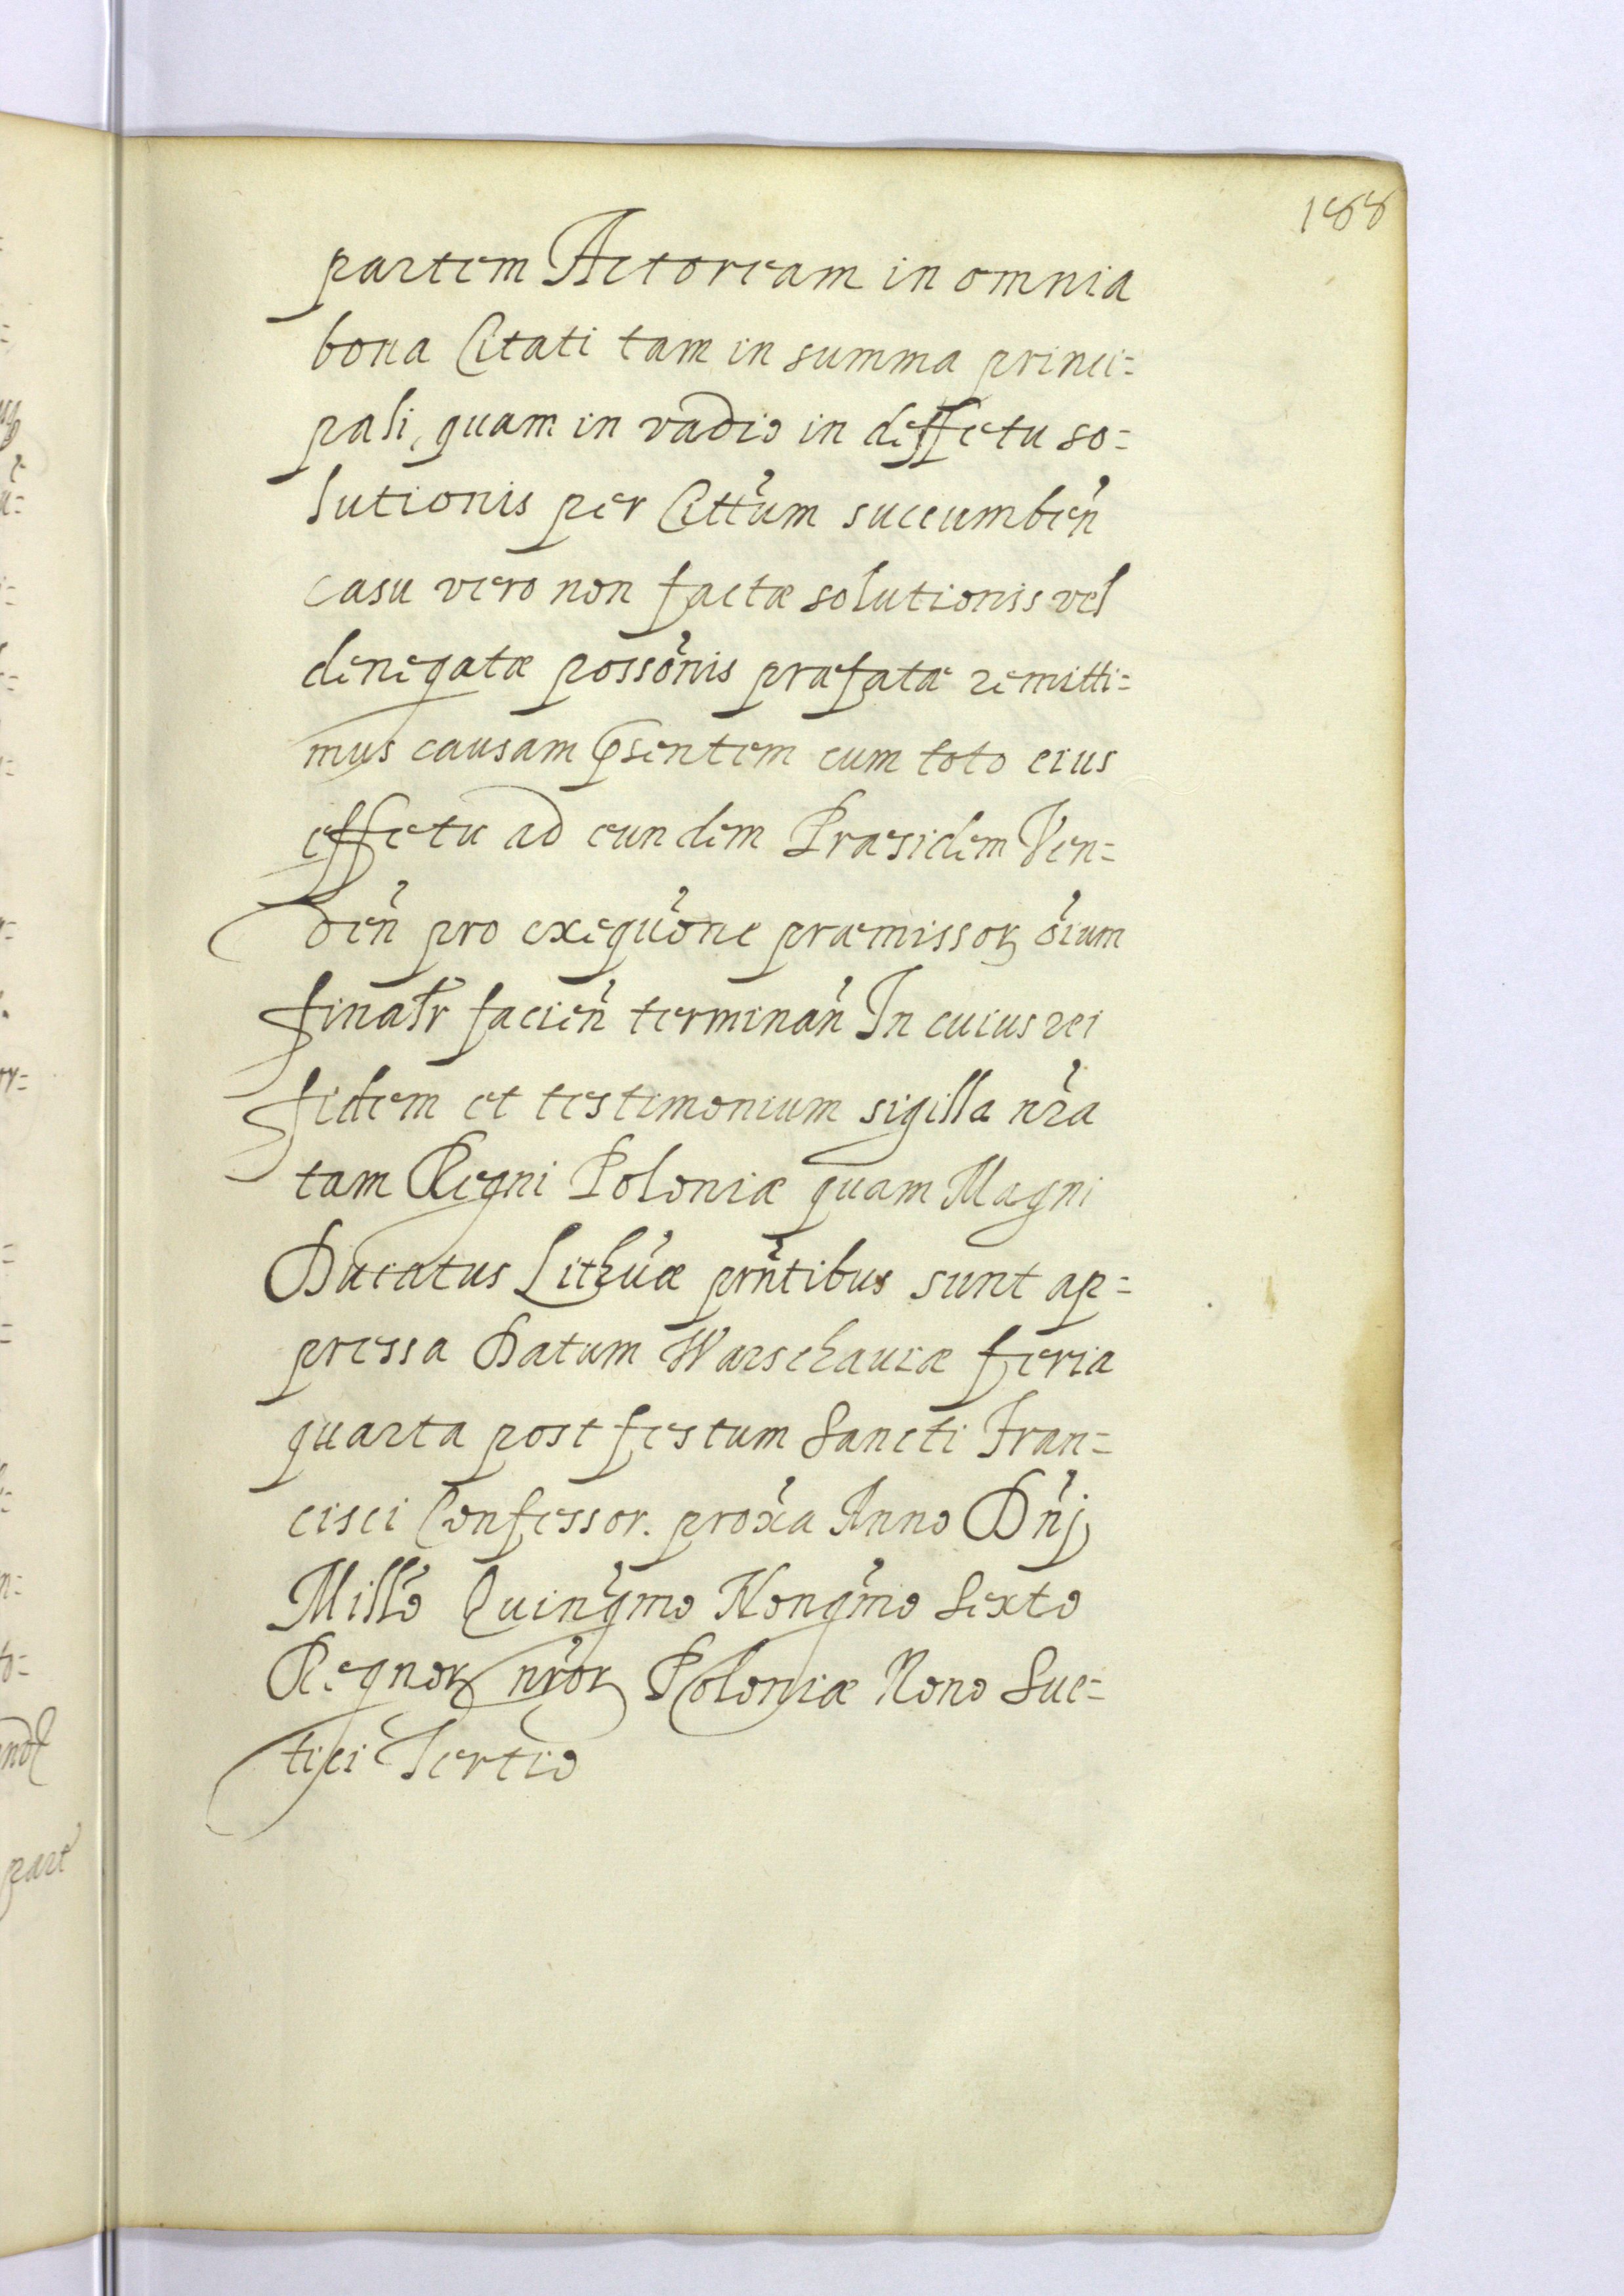 188
partem Actoream in omnia
bona Citati tam in summa princi=
pali, quam in vadio in deffectu so=
lutionis per Citt'um succumben'
casu vero non factæ solutionis vel
denegatæ posso'nis præfatæ remitti=
mus causam p̄sentem cum toto eius
effectu ad eundem Præsidem Ven=
den' pro exequu'one præmissoꝝ o'ium
finalr' facien' terminan' In cuius rei
fidem et testimonium sigilla nr'a
tam Regni Poloniæ quam Magni
Ducatus Lithu'æ prn'tibus sunt ap=
pressa Datum Warschauiæ feria
quarta post festum Sancti Fran=
cisci Confessor. prox'a Anno Dn'j
Mill'o Quing'mo Nong'mo Sexto
Regnoꝝ nr'oꝝ Poloniæ Nono Sue=
tici Tertio
part